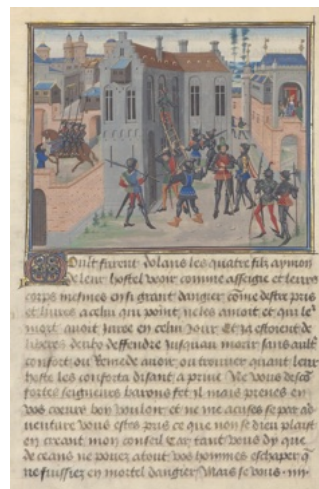 Moult furent dolans les quatre filz aymon
de leur hostel veoir comme assegie et leurs
corps mesmes en si grant dangier come destre pris
et livrez a celui qui point ne les amoit et qui le
mort avoit juree en celui jour Et ja estoient de
liberes deulx deffendre jusquau morir sans aultre
confort ou remede avoir ou trouver quant leur
hoste les conforta disant a prime Ne vous descon
fortes seigneurs barons fet il mais prenes en
vos coeurs bon vouloir et ne me acuses se par ad
venture vous estes pris ce que non se dieu plaist
en creant mon conseil Car tant vous dy que
de ceans ne pouez atout vos hommes eschaper q
ne fuissiez en mortel dangier Mais se vous .iiii.